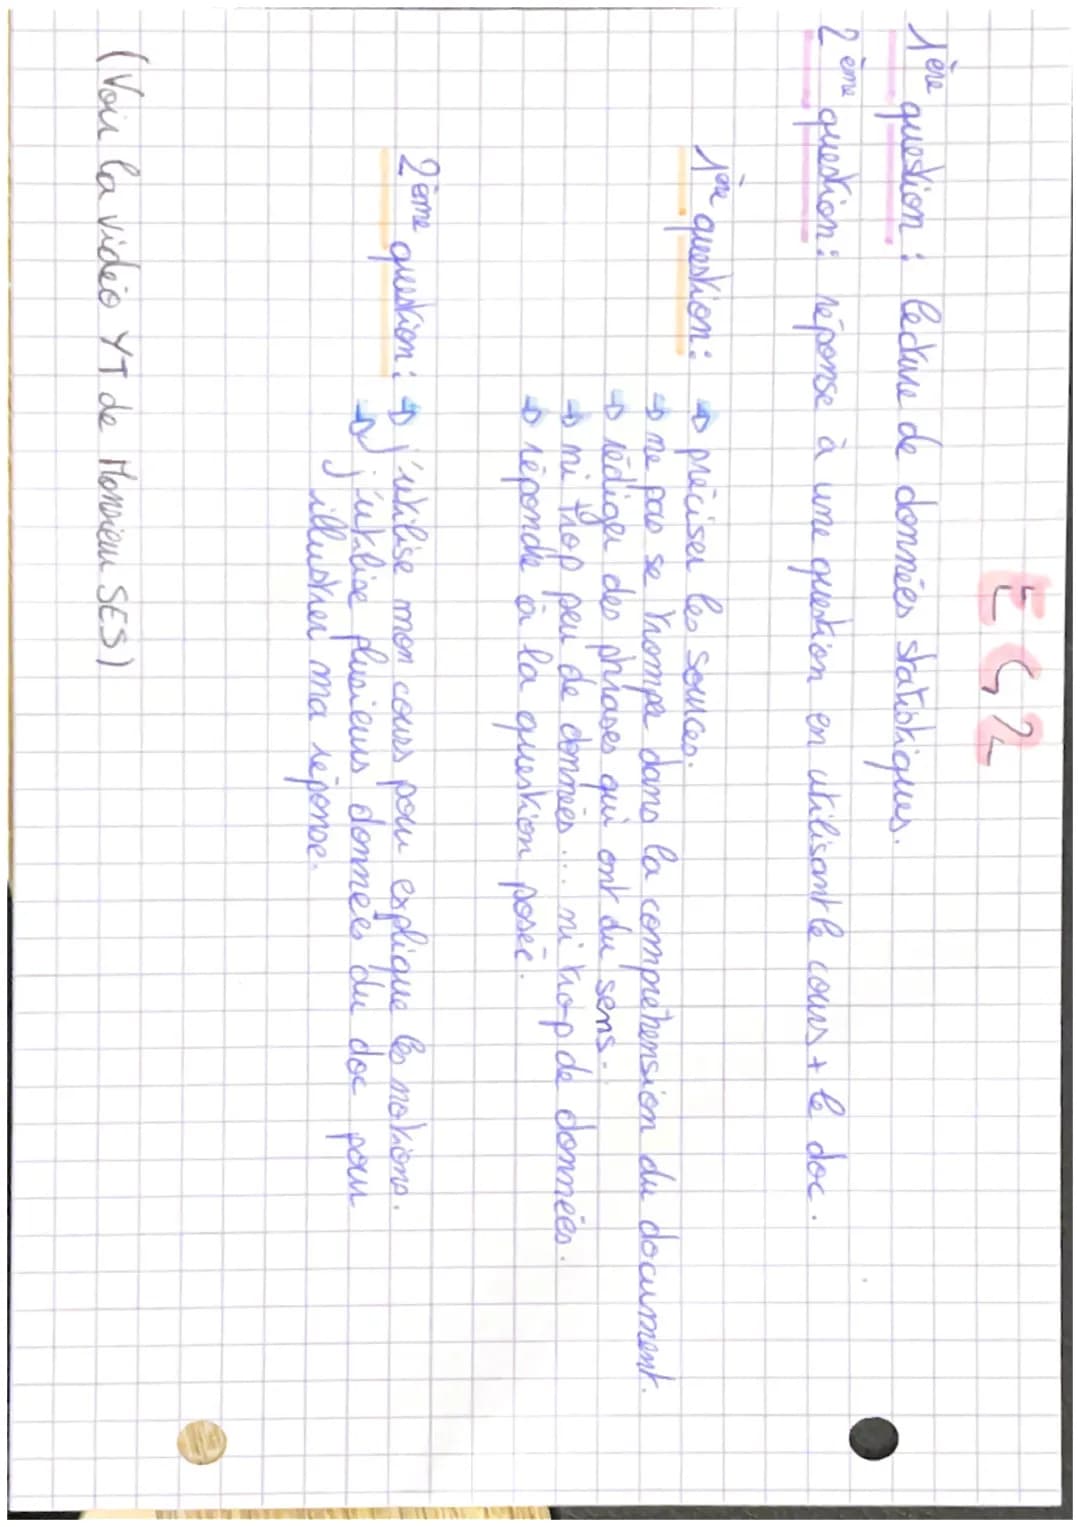 EC2
1ère question : lecture de données statistiques.
2ème question : réponse à une question en utilisant le cours + le doc.
1ère question : → préciser les sources.
→ ne pas se tromper dans la compréhension du document.
→ rédiger des phrases qui ont du sens.
→ ni trop peu de données ... ni trop de données.
→ répondre à la question posée.
2ème question : → j'utilise mon cours pour explique les notions.
→ j'utilise plusieurs données du doc pour
illustrer ma réponse.
(Voir la vidéo YT de Monsieur SES)